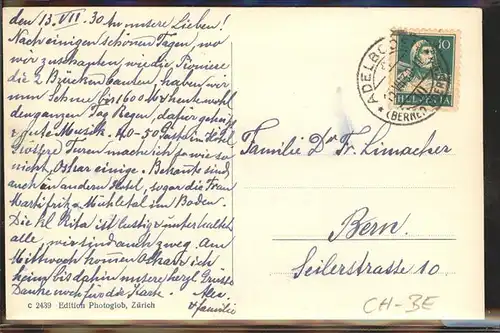 den 13. VII. 30. Ihr unsere Lieben!
Nach einigen schönen Tagen, wo
wir zuschauten, wie die Pioniere
die 2 Brücken bauten, haben wir
nun Schnee bis 1600 M heute wohl
den ganzen Tag Regen, dafür
gute Musik. 40-50 Gäste im Hotel
Grössere Turen mach ich sowieso
nicht, Oskar einige. Bekannte sind
auch in andern Hotel, sogar die Frau
Marti Fritz - Mühletal im Boden.
Die kl. Rita ist lustig & unterhaltet
alle, wir sind auch zweg. Am
Mittwoch kommen Oskar & ich
heim bis dahin unsere herzl Grüsse
Danke noch für die Karte.
& Familie
c 2439 Edition Photoglob, Zürich
ADELBODEN
(BERNE)
10
HELVETIA
Familie Dr Fr. Limacher
Bern.
Seilerstrasse 10
CH-BE